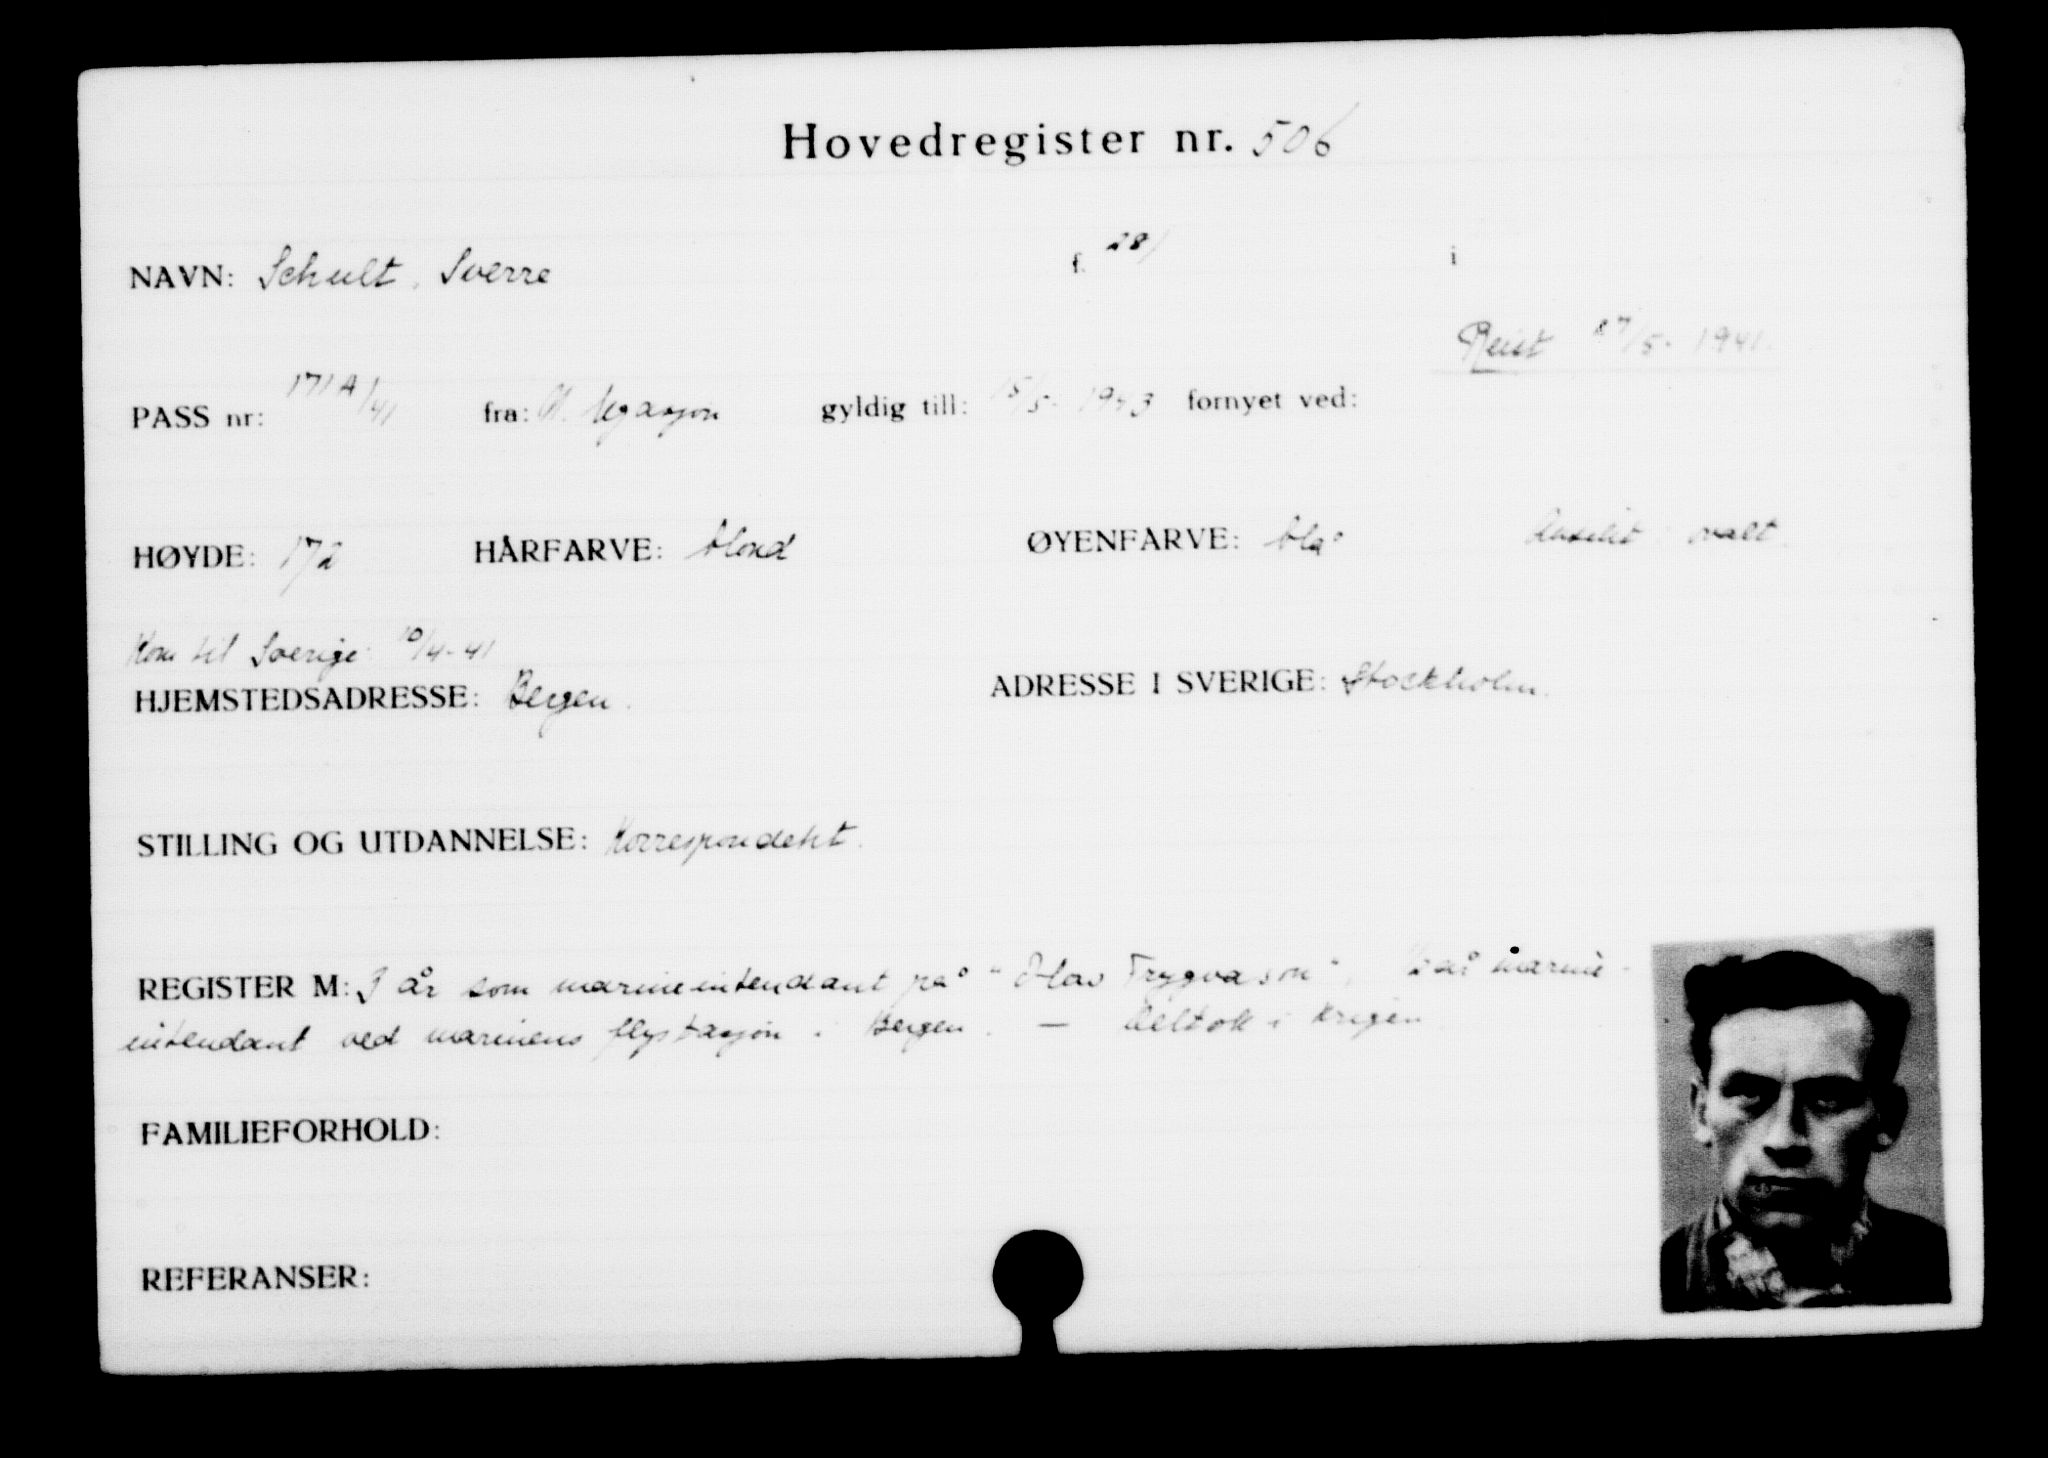 Hovedregister nr. 506
NAVN: Schult, Sverre f. 28/ i
Reist 27/5- 1941.
PASS nr: 171A/41 fra: N. Legasjon gyldig till: 15/5- 1943 fornyet ved:
HØYDE: 172 HÅRFARVE: blond ØYENFARVE: blå Ansikt: ovalt.
Kom til Sverige: 10/4-41
HJEMSTEDSADRESSE: Bergen. ADRESSE I SVERIGE: Stockholm.
STILLING OG UTDANNELSE: Korrespondent.
REGISTER M: år som marineintendant på "Olav Trygvason", år marine-
intendant ved marinens flystasjon i Bergen. — Deltok i krigen
FAMILIEFORHOLD:
REFERANSER: